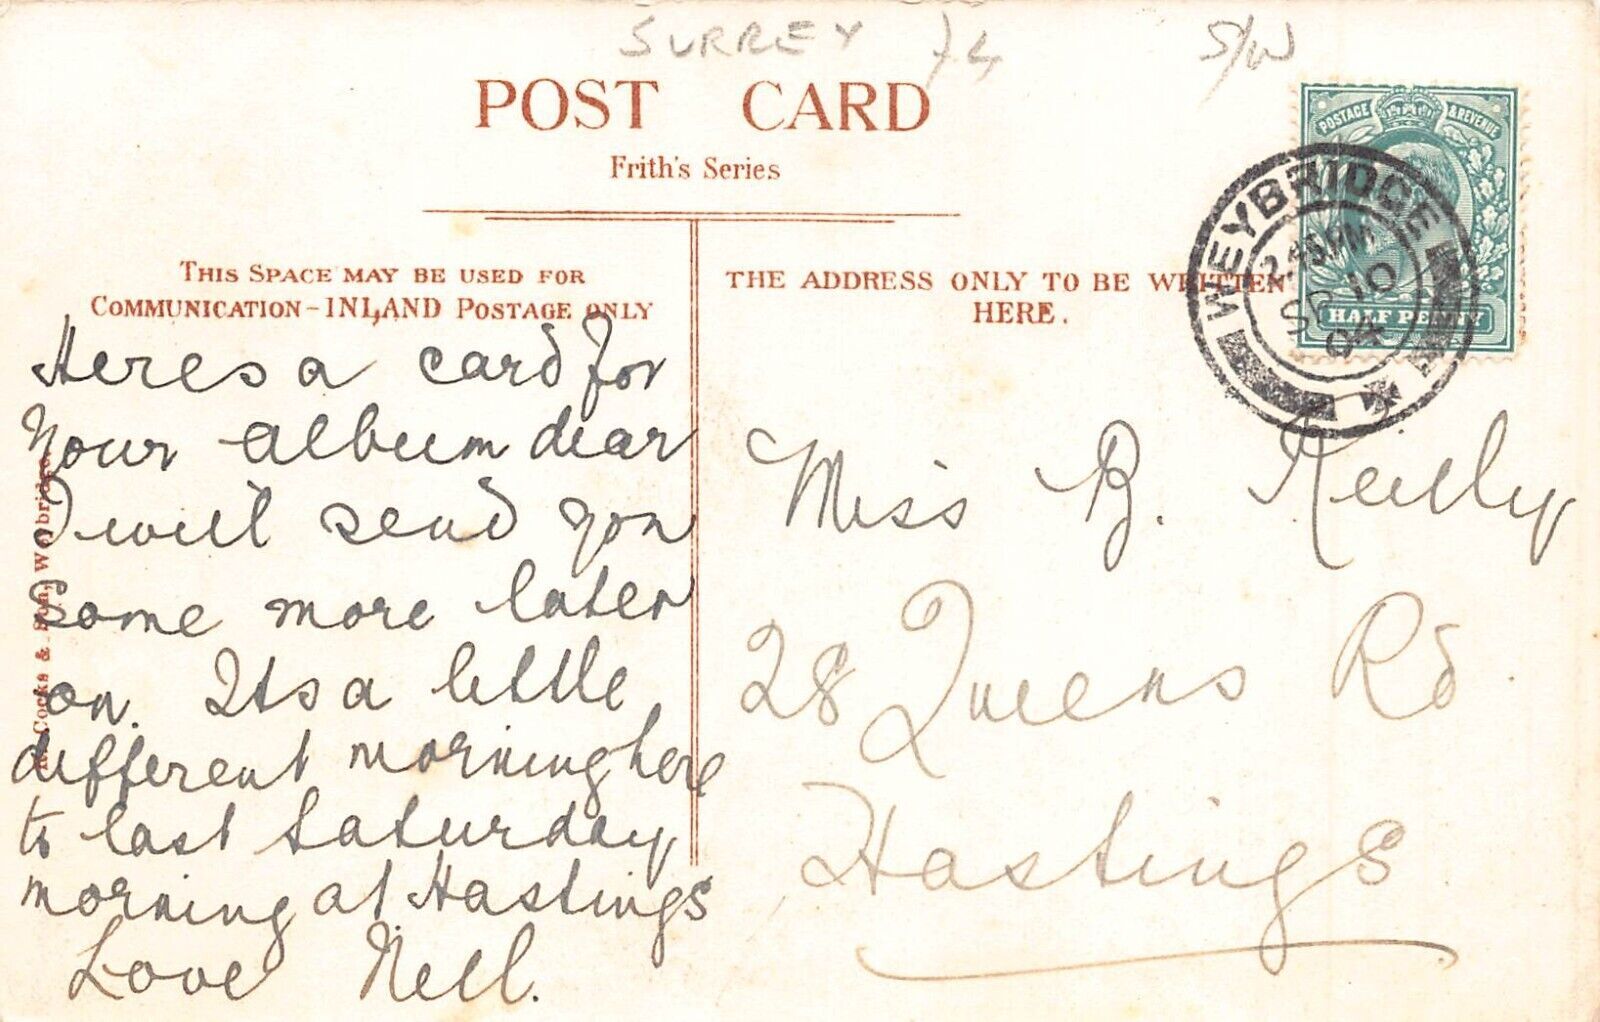 SURREY 74 S/W
POST CARD
Frith's Series
THIS SPACE MAY BE USED FOR
COMMUNICATION-INLAND POSTAGE ONLY
THE ADDRESS ONLY TO BE WRITTEN
HERE.
POSTAGE & REVENUE
HALF PENNY
WEYBRIDGE
2.45PM
SP 10
04
Heres a card for
your album dear
I will send you
some more later
on. Its a little
different morning here
to last Saturday
morning at Hastings
Love Nell.
Miss B. Reilly
28 Queens Rd.
Hastings
Cocks & Son, Weybridge